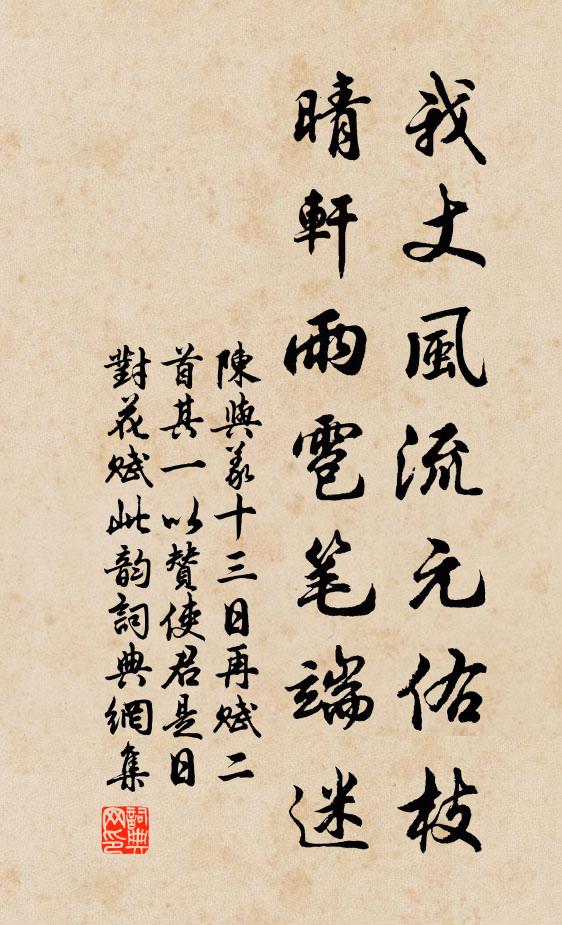 我丈風流元佑枝
晴軒雨雹笔端迷
陳與義十三日再赋二
首其一以贊使君是日
對花赋此韵詞典網集
詞典網印